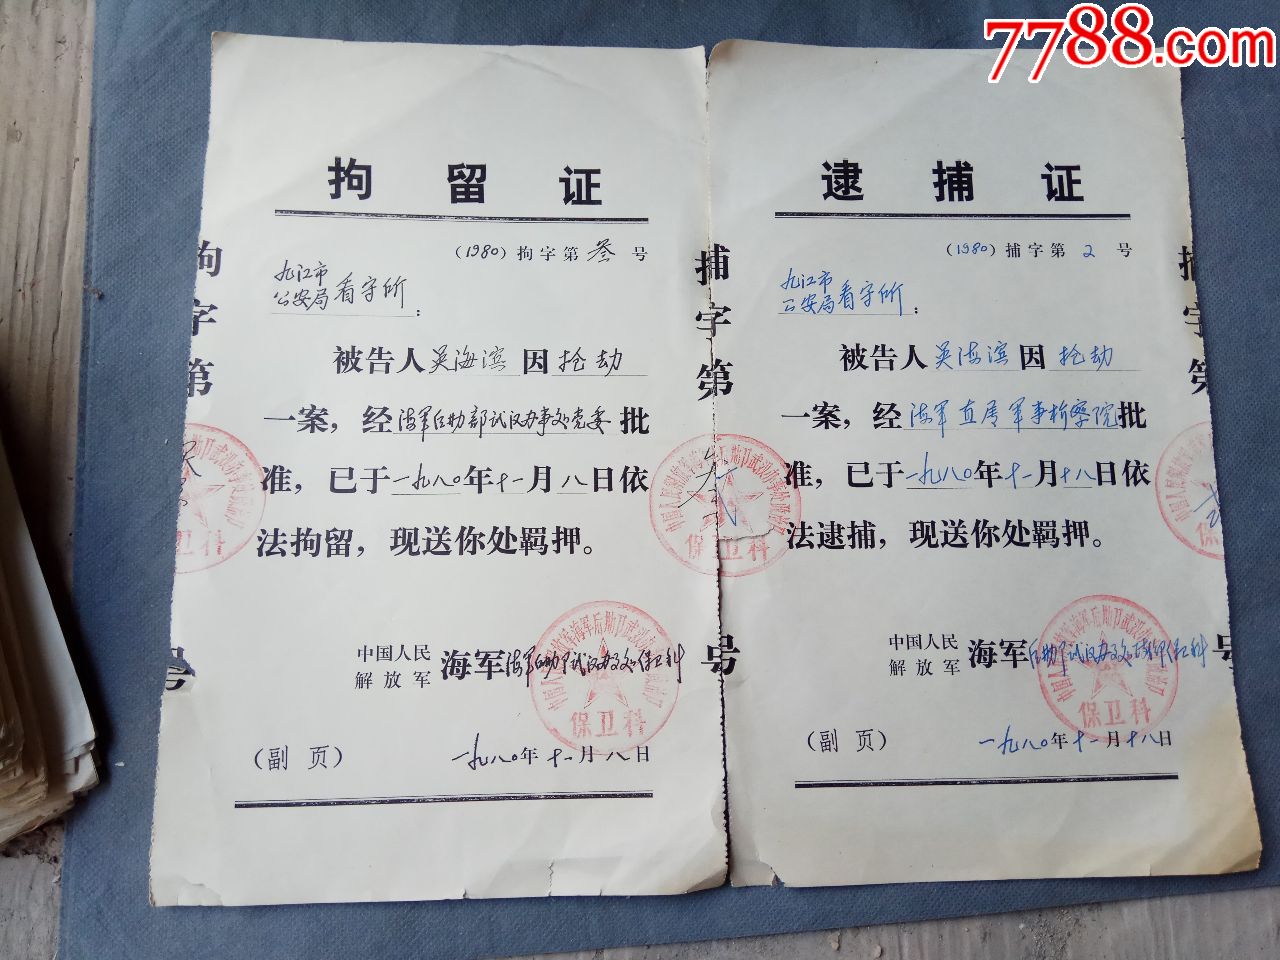 7788.com
拘留证
(1980)拘字第叁号
九江市
公安局看守所:
被告人吴海滨因抢劫
一案,经海军后勤部武汉办事处党委批
准,已于一九八〇年十一月八日依
法拘留,现送你处羁押。
中国人民
解放军
海军海军后勤部武汉办事处保卫科
保卫科
(副页)
一九八〇年十一月八日
拘字第
号
保卫科
逮捕证
(1980)捕字第2号
九江市
公安局看守所:
被告人吴海滨因抢劫
一案,经海军直属军事检察院批
准,已于一九八〇年十一月十八日依
法逮捕,现送你处羁押。
中国人民
解放军
海军后勤部武汉办事处保卫科
保卫科
(副页)
一九八〇年十一月十八日
捕字第
号
保卫科
捕字第
号